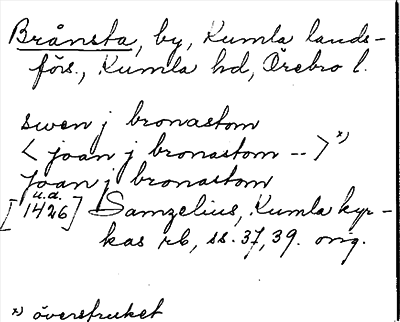 Brånsta, by, Kumla lands-
förs., Kumla hd, Örebro l.
swen j bronastom
< joan j bronastom -- > x)
Joan j bronastom
u.d.
[1426] Samzelius, Kumla kyr-
kas rb, ss. 37, 39. orig.
x) överstruket